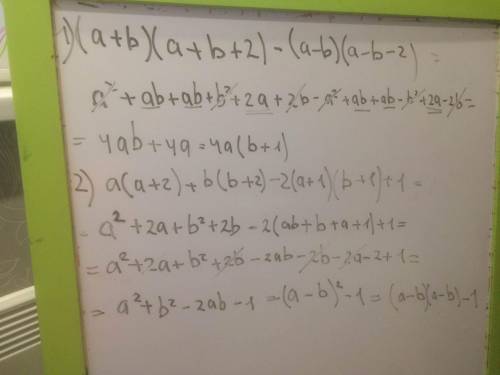 1) (a+b)(a+b+2) - (a-b)(a-b-2) =
a² + ab + ab + b² + 2a + 2b - a² + ab + ab - b² + 2a - 2b =
= 4ab + 4a = 4a(b+1)
2) a(a+2) + b(b+2) - 2(a+1)(b+1) + 1 =
= a² + 2a + b² + 2b - 2(ab+b+a+1) + 1 =
= a² + 2a + b² + 2b - 2ab - 2b - 2a - 2 + 1 =
= a² + b² - 2ab - 1 = (a-b)² - 1 = (a-b)(a-b) - 1